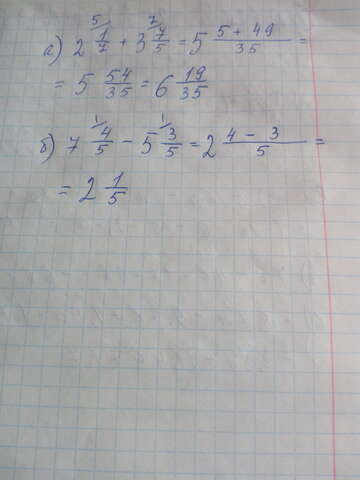 а) 2 5/ 1/7 + 3 7/ 7/5 = 5 (5 + 49)/35 =
= 5 54/35 = 6 19/35
б) 7 1/ 4/5 − 5 1/ 3/5 = 2 (4 − 3)/5 =
= 2 1/5